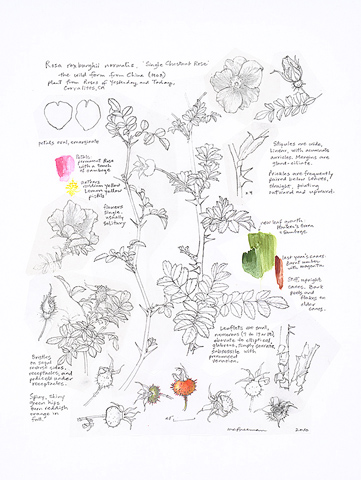 Rosa roxburghii normalis, 'Single Chestnut Rose'
the wild form from China
plant from Roses of Yesterday and Today,
petals oval, emarginate
Petals:
permanent Rose
with a touch
of cambogia
anthers
medium yellow
lemon yellow
pistils
flowers
single,
usually
solitary
Stipules are wide,
linear, with acuminate
auricles. Margins are
gland-ciliate.
Prickles are frequently
paired below leaves,
straight, pointing
outward and upward.
new leaf growth:
Hooker's Green
last year's canes:
Burnt umber
with magenta
Stiff, upright
canes. Bark
peels and
flakes on
older
canes.
Leaflets are small,
numerous
obovate to elliptical,
glabrous, simply serrate,
subsessile with
pronounced
venation.
Bristles
on sepal
sides,
receptacles, and
pedicels under
receptacles.
Spiny, shiny
green hips
turn reddish
orange in
fall.
2020